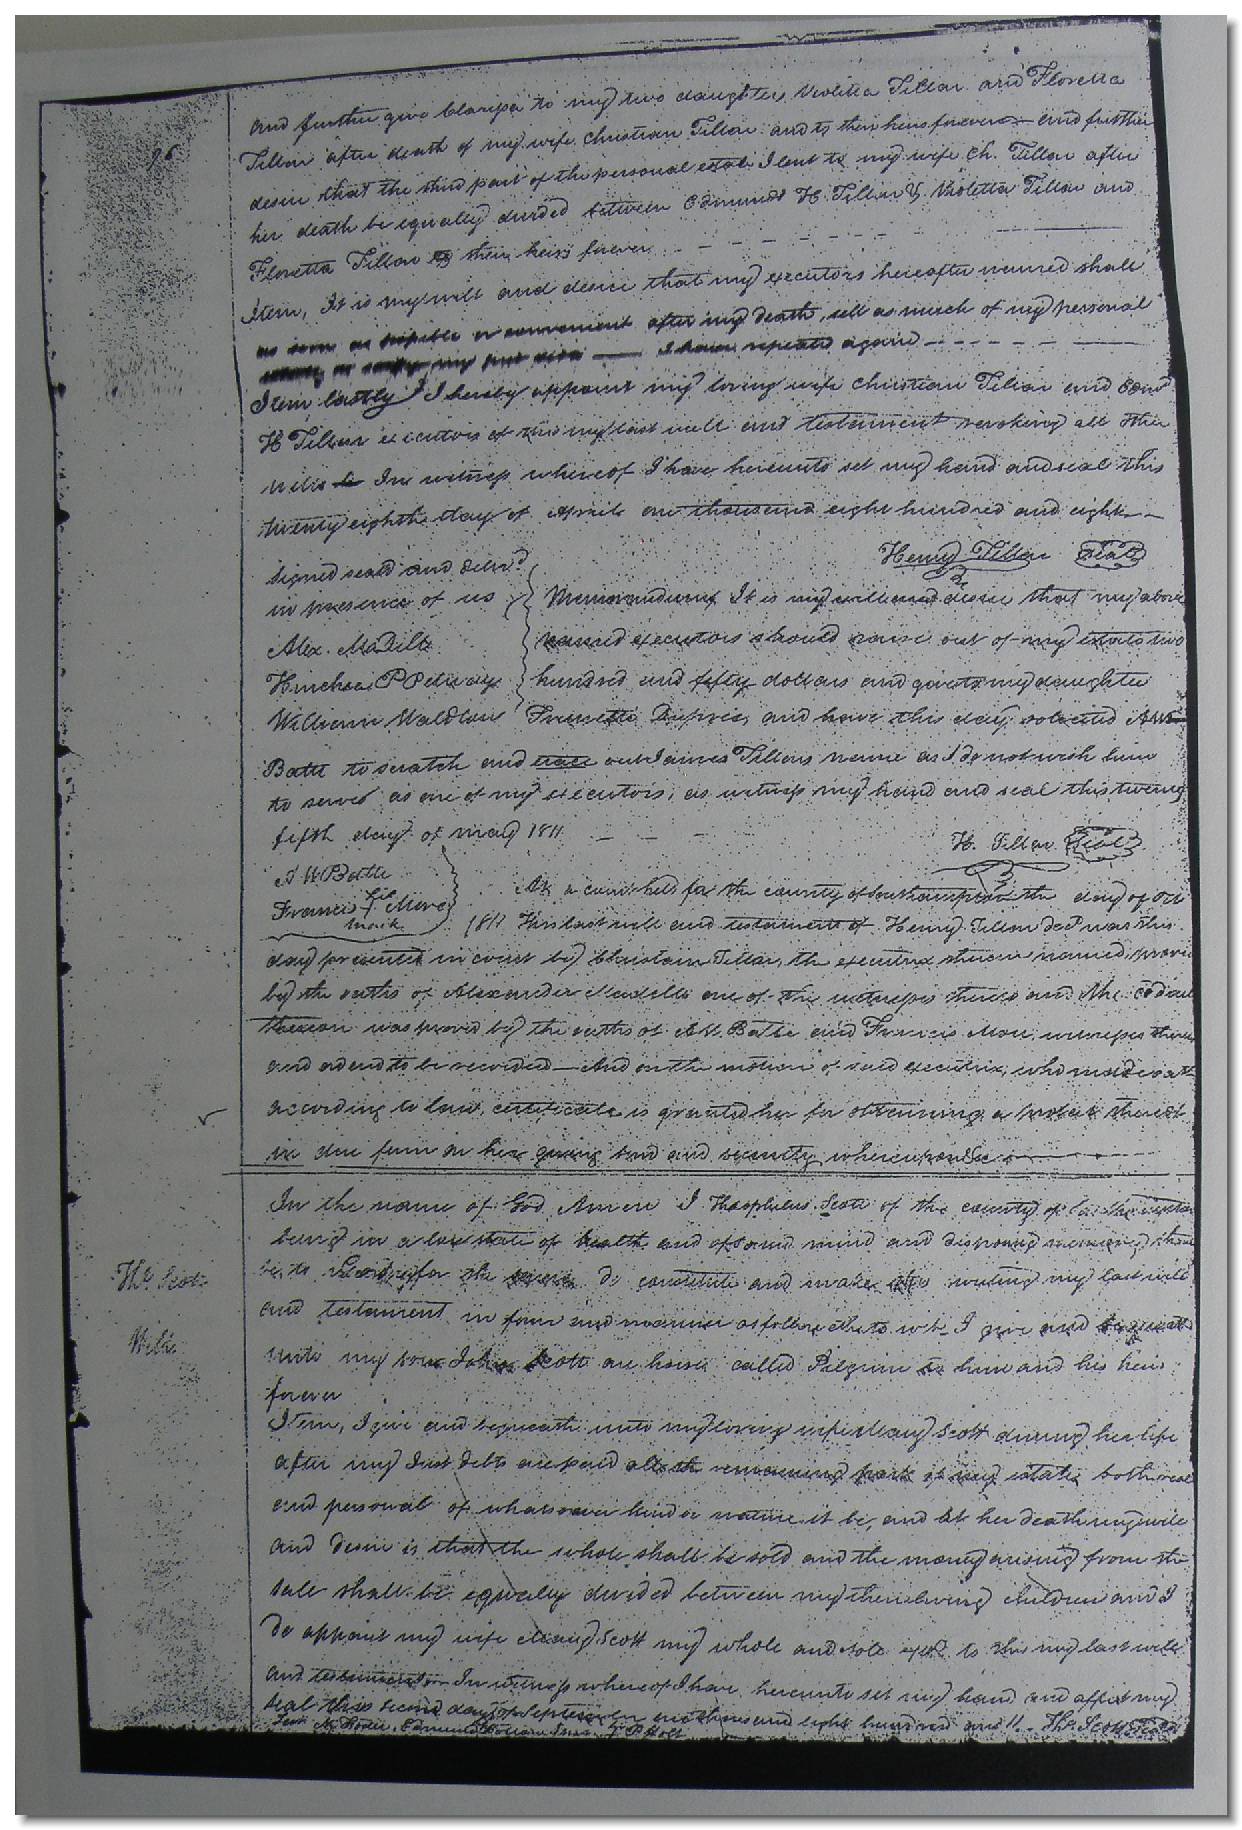 96
and further give Clarissa to my two daughters Violetta Tillar and Floretta
Tillar after death of my wife Christian Tillar and to their heirs forever and further
desire that the third part of the personal estate I lent to my wife Ch. Tillar after
her death be equally divided between Edmund H. Tillar & Violetta Tillar and
Floretta Tillar to their heirs forever
Item, It is my will and desire that my executors hereafter named shall
as soon as possible or convenient after my death, sell as much of my personal
my just I have repeated again
Item lastly I hereby appoint my loving wife Christian Tillar and Edmd
H Tillar executors of this my last will and testament revoking all other
wills In witness whereof I have hereunto set my hand and seal this
twenty eighth day of April one thousand eight hundred and eight
Henry Tillar Seal
Signed seald and delivd
in presence of us
Alex. Madills
Hincher P Petway
William Waldlaw
Memorandum It is my will and desire that my above
named executors should raise out of my estate two
hundred and fifty dollars and give to my daughter
and have this day solicited AW
Battle to scratch and out James Tillars name as I do not wish him
to serve as one of my executors, as witness my hand and seal this twenty
fifth day of may 1811
H. Tillar Seal
A W Battle
Francis his More
mark
At a court held for the county of Southampton the day of Oct
1811 This last will and testament of Henry Tillar decd was this
day presented in court by Christian Tillar, the executrix therein named, proved
by the oaths of Alexander Madills one of the witnesses thereto and the codicil
thereon was proved by the oaths of A.W. Battle and Francis More witnesses thereto
and ordered to be recorded And on the motion of said executrix, who made oath
according to law, certificate is granted her for obtaining a probat thereof
in due form on her giving bond and security whereupon &c
Ths Scott
Will
In the name of God Amen I Theophelus Scott of the county of Southampton
being in a low state of health and of sound mind and disposing memory thanks
be to for the same do constitute and make this writing my last will
and testament in form and manner as follow that is to I give and bequeath
unto my son John Scott one horse called Pilgrim to him and his heirs
forever
Item, I give and bequeath unto my loving wife Mary Scott during her life
after my Just debts are paid all the remaining part of my estate both real
and personal of whatsoever kind or nature it be, and at her death my will
and desire is that the whole shall be sold and the money arising from the
sale shall be equally divided between my then living children and I
do appoint my wife Mary Scott my whole and sole extr. to this my last will
and testament In witness whereof I have hereunto set my hand and affix my
seal this second day of September one thousand eight hundred and 11. Ths. Scott Seal
P Holt